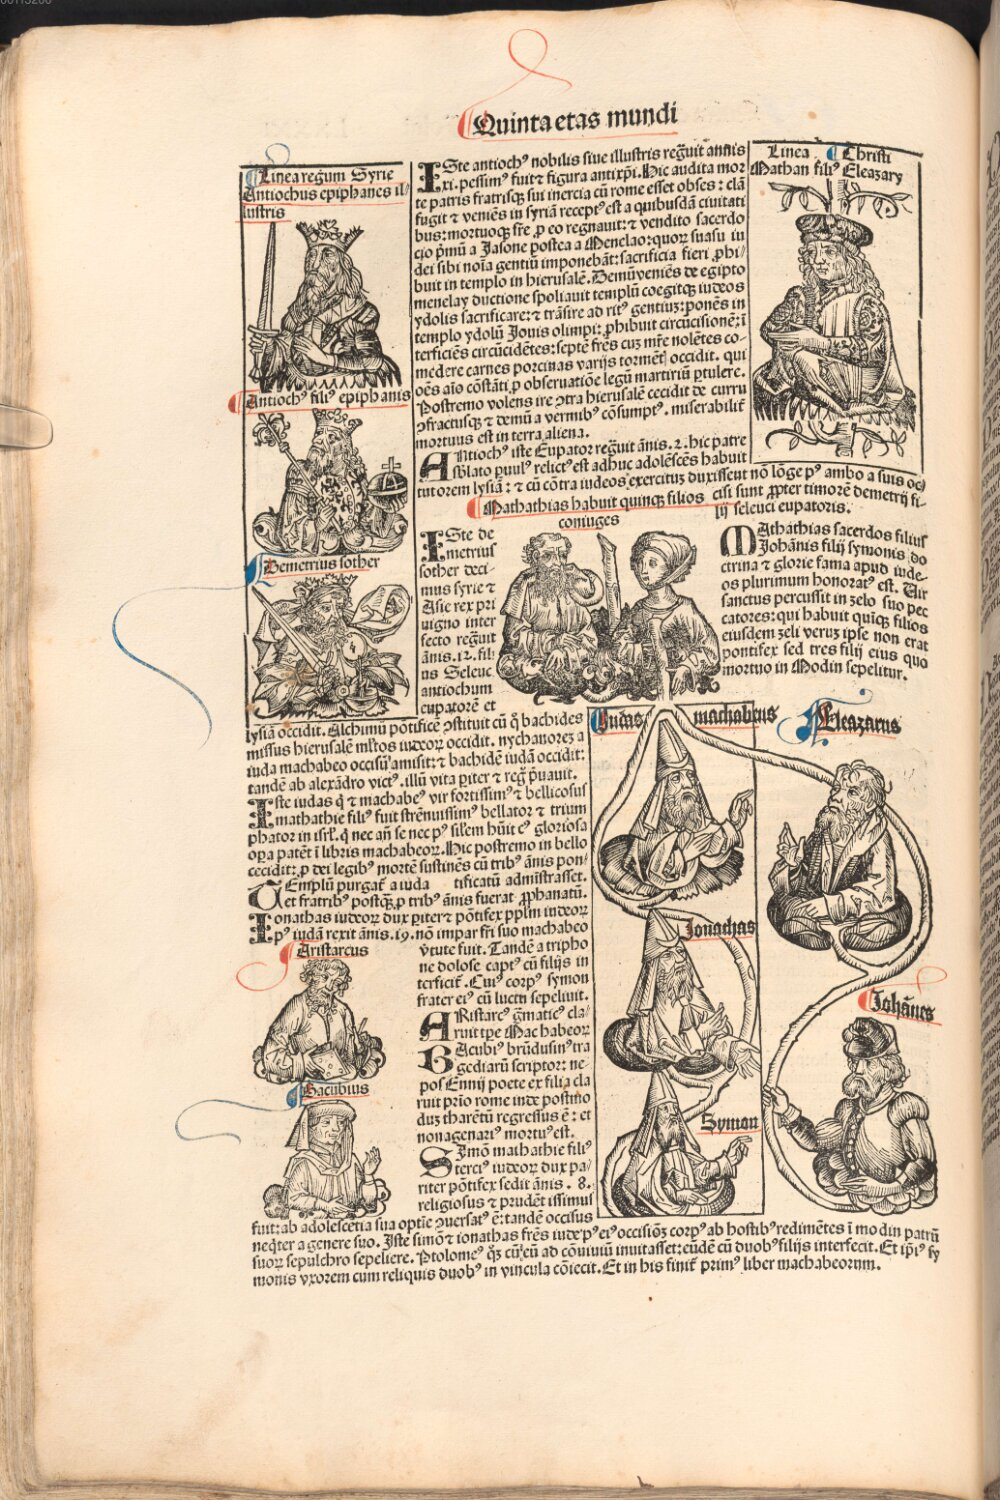 Quinta etas mundi
Linea regum Syrie
Antiochus epiphanes il⸗
lustris
Antiochꝰ filiꝰ epiphanis
Demetrius sother
ISte antiochꝰ nobilis siue illustris regͣuit annis
xi. pessimꝰ fuit ⁊ figura antixp̄i. Hic audita mor
te patris fratrisqꝫ sui inercia cū rome esset obses: clā
fugit ⁊ veniēs in syriā receptꝰ est a quibusdā ciuitati
bus: mortuoqꝫ fr̄e ꝓ eo regnauit: ⁊ vendito sacerdo
cio pͥmū a Jasone postea a Menelao: quoꝝ suasu iu
dei sibi noīa gentiū imponebāt: sacrificia fieri ꝓhi⸗
buit in templo in hierusalē. Demū veniēs de egipto
menelay ductione spoliauit templū coegitqꝫ iudeos
ydolis sacrificare: ⁊ trāsire ad ritꝰ gentiuꝫ: ponēs in
templo ydolū Jouis olimpi: ꝓhibuit circūcisionē: ī
terficiēs circūcidētes: septē fr̄es cuꝫ mr̄e nolētes co⸗
medere carnes porcinas varijs tormēt̄ occidit. qui
oēs aīo cōstāti ꝓ obseruatiōe legū martiriū ꝑtulere.
Postremo volens ire ꝯtra hierusalē cecidit de curru
ꝯfractusqꝫ ⁊ demū a vermibꝰ cōsumptꝰ. miserabilit̄
mortuus est in terra aliena.
ANtiochꝰ iste Eupator regͣuit ānis. 2. hic patre
sublato ꝑuulꝰ relictꝰ est adhuc adolescēs habuit
tutorem lysiā: ⁊ cū cōtra iudeos exercitus duxissent nō lōge pꝰ ambo a suis oc⸗
cisi sunt ꝓpter timorē demetrij fi⸗
lij seleuci eupatoris.
Linea Christi
Mathan filiꝰ Eleazary
Mathathias habuit quinqꝫ filios
coniuges
ISte de
metrius
sother deci⸗
mus syrie ⁊
Asie rex pri
uigno inter
fecto regͣuit
ānis. 12. fili
us Seleuc
antiochum
eupatorē et
lysiā occidit. Alchimū pōtificē ꝯstituit cū q̄ bachides
missus hierusalē ml̄tos iudeoꝝ occidit. nychanorēꝫ a
iuda machabeo occisū amisit: ⁊ bachidē iudā occidit:
tandē ab alexādro victꝰ. illū vita ꝑiter ⁊ regͦ pͥuauit.
MAthathias sacerdos filius
Johānis filij symonis do
ctrina ⁊ glorie fama apud iude⸗
os plurimum honoratꝰ est. Vir
sanctus percussit in zelo suo pec
catores: qui habuit quīqꝫ filios
eiusdem zeli veruꝫ ipse non erat
pontifex sed tres filij eius quo
mortuo in Modin sepelitur.
Iste iudas q̇ ⁊ machabeꝰ vir fortissimꝰ ⁊ bellicosus
mathathie filiꝰ fuit strēnuissimꝰ bellator ⁊ trium
phator in isrl̄. q̇ nec an̄ se nec pꝰ sil̄em hūit eꝰ gloriosa
oꝑa patēt ī libris machabeoꝝ. Hic postremo in bello
cecidit: ꝓ dei legibꝰ mortē sustinēs cū tribꝰ ānis pon⸗
tificatū admīstrasset.
TEmplū purgat̄ a iuda
et fratribꝰ postqꝫ ꝑ tribꝰ ānis fuerat ꝓphanatū.
Ionathas iudeoꝝ dux ꝑiter ⁊ pōtifex ppl̄m iudeoꝝ
pꝰ iudā rexit ānis. 19. nō impar fr̄i suo machabeo
v̄tute fuit. Tandē a tripho
ne dolose captꝰ cū filijs in
terficit̄. Cuiꝰ corpꝰ symon
frater eiꝰ cū luctu sepeliuit.
Aristarcus
ARistarcꝰ gͣmaticꝰ cla⸗
ruit tꝑe Machabeoꝝ
Bacubius
BAcubiꝰ brūdusinꝰ tra
gediarū scriptor: ne⸗
pos Ennij poete ex filia cla
ruit pͥmo rome inde postmo
duꝫ tharētū regressus ē: et
nonagenariꝰ mortuꝰ est.
SImō mathathie filiꝰ
terciꝰ iudeoꝝ dux pa⸗
riter pōtifex sedit ānis. 8.
religiosus ⁊ prudētissimus
fuit: ab adolescētia sua optīe ꝯuersatꝰ ē: tandē occisus
neq̄ter a genere suo. Iste simō ⁊ ionathas fr̄es iude pꝰ eiꝰ occisiōꝫ corpꝰ ab hostibꝰ redimētes ī modin patrū
suoꝝ sepulchro sepeliere. Ptolomeꝰ q̄ꝫ cū eū ad cōuiuiū inuitasset: eūdē cū duobꝰ filijs interfecit. Et ip̄iꝰ sy
monis vxorem cum reliquis duobꝰ in vincula cōiecit. Et in his finit̄ primꝰ liber machabeorum.
Iudas machabeus
Eleazarus
Jonathas
Johānes
Symon